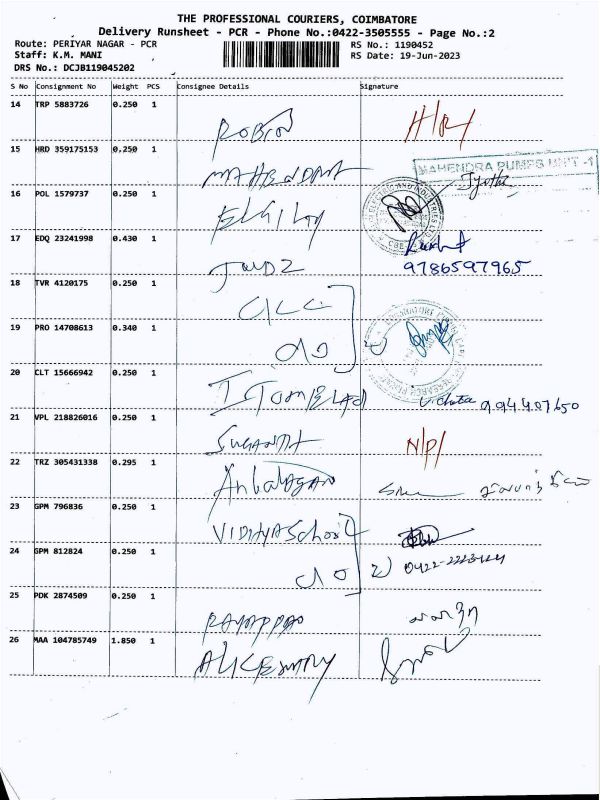 THE PROFESSIONAL COURIERS, COIMBATORE
Delivery Runsheet - PCR - Phone No.:0422-3505555 - Page No.:2
Route: PERIYAR NAGAR - PCR
RS No.: 1190452
Staff: K.M. MANI
RS Date: 19-Jun-2023
DRS No.: DCJB119045202
S No Consignment No Weight PCS Consignee Details Signature
14 TRP 5883726 0.250 1
15 HRD 359175153 0.250 1
MAHENDRA PUMPS UNIT -1
Jyothi
16 POL 1579737 0.250 1
17 EDQ 23241998 0.430 1
9786597965
18 TVR 4120175 0.250 1
19 PRO 14708613 0.340 1
20 CLT 15666942 0.250 1
21 VPL 218826016 0.250 1
SUGANTH N/P/
22 TRZ 305431338 0.295 1
Anbalagan
23 GPM 796836 0.250 1
VIDHYA School
24 GPM 812824 0.250 1
25 PDK 2874509 0.250 1
RAYAPPAN
26 MAA 104785749 1.850 1
ALICEMARY